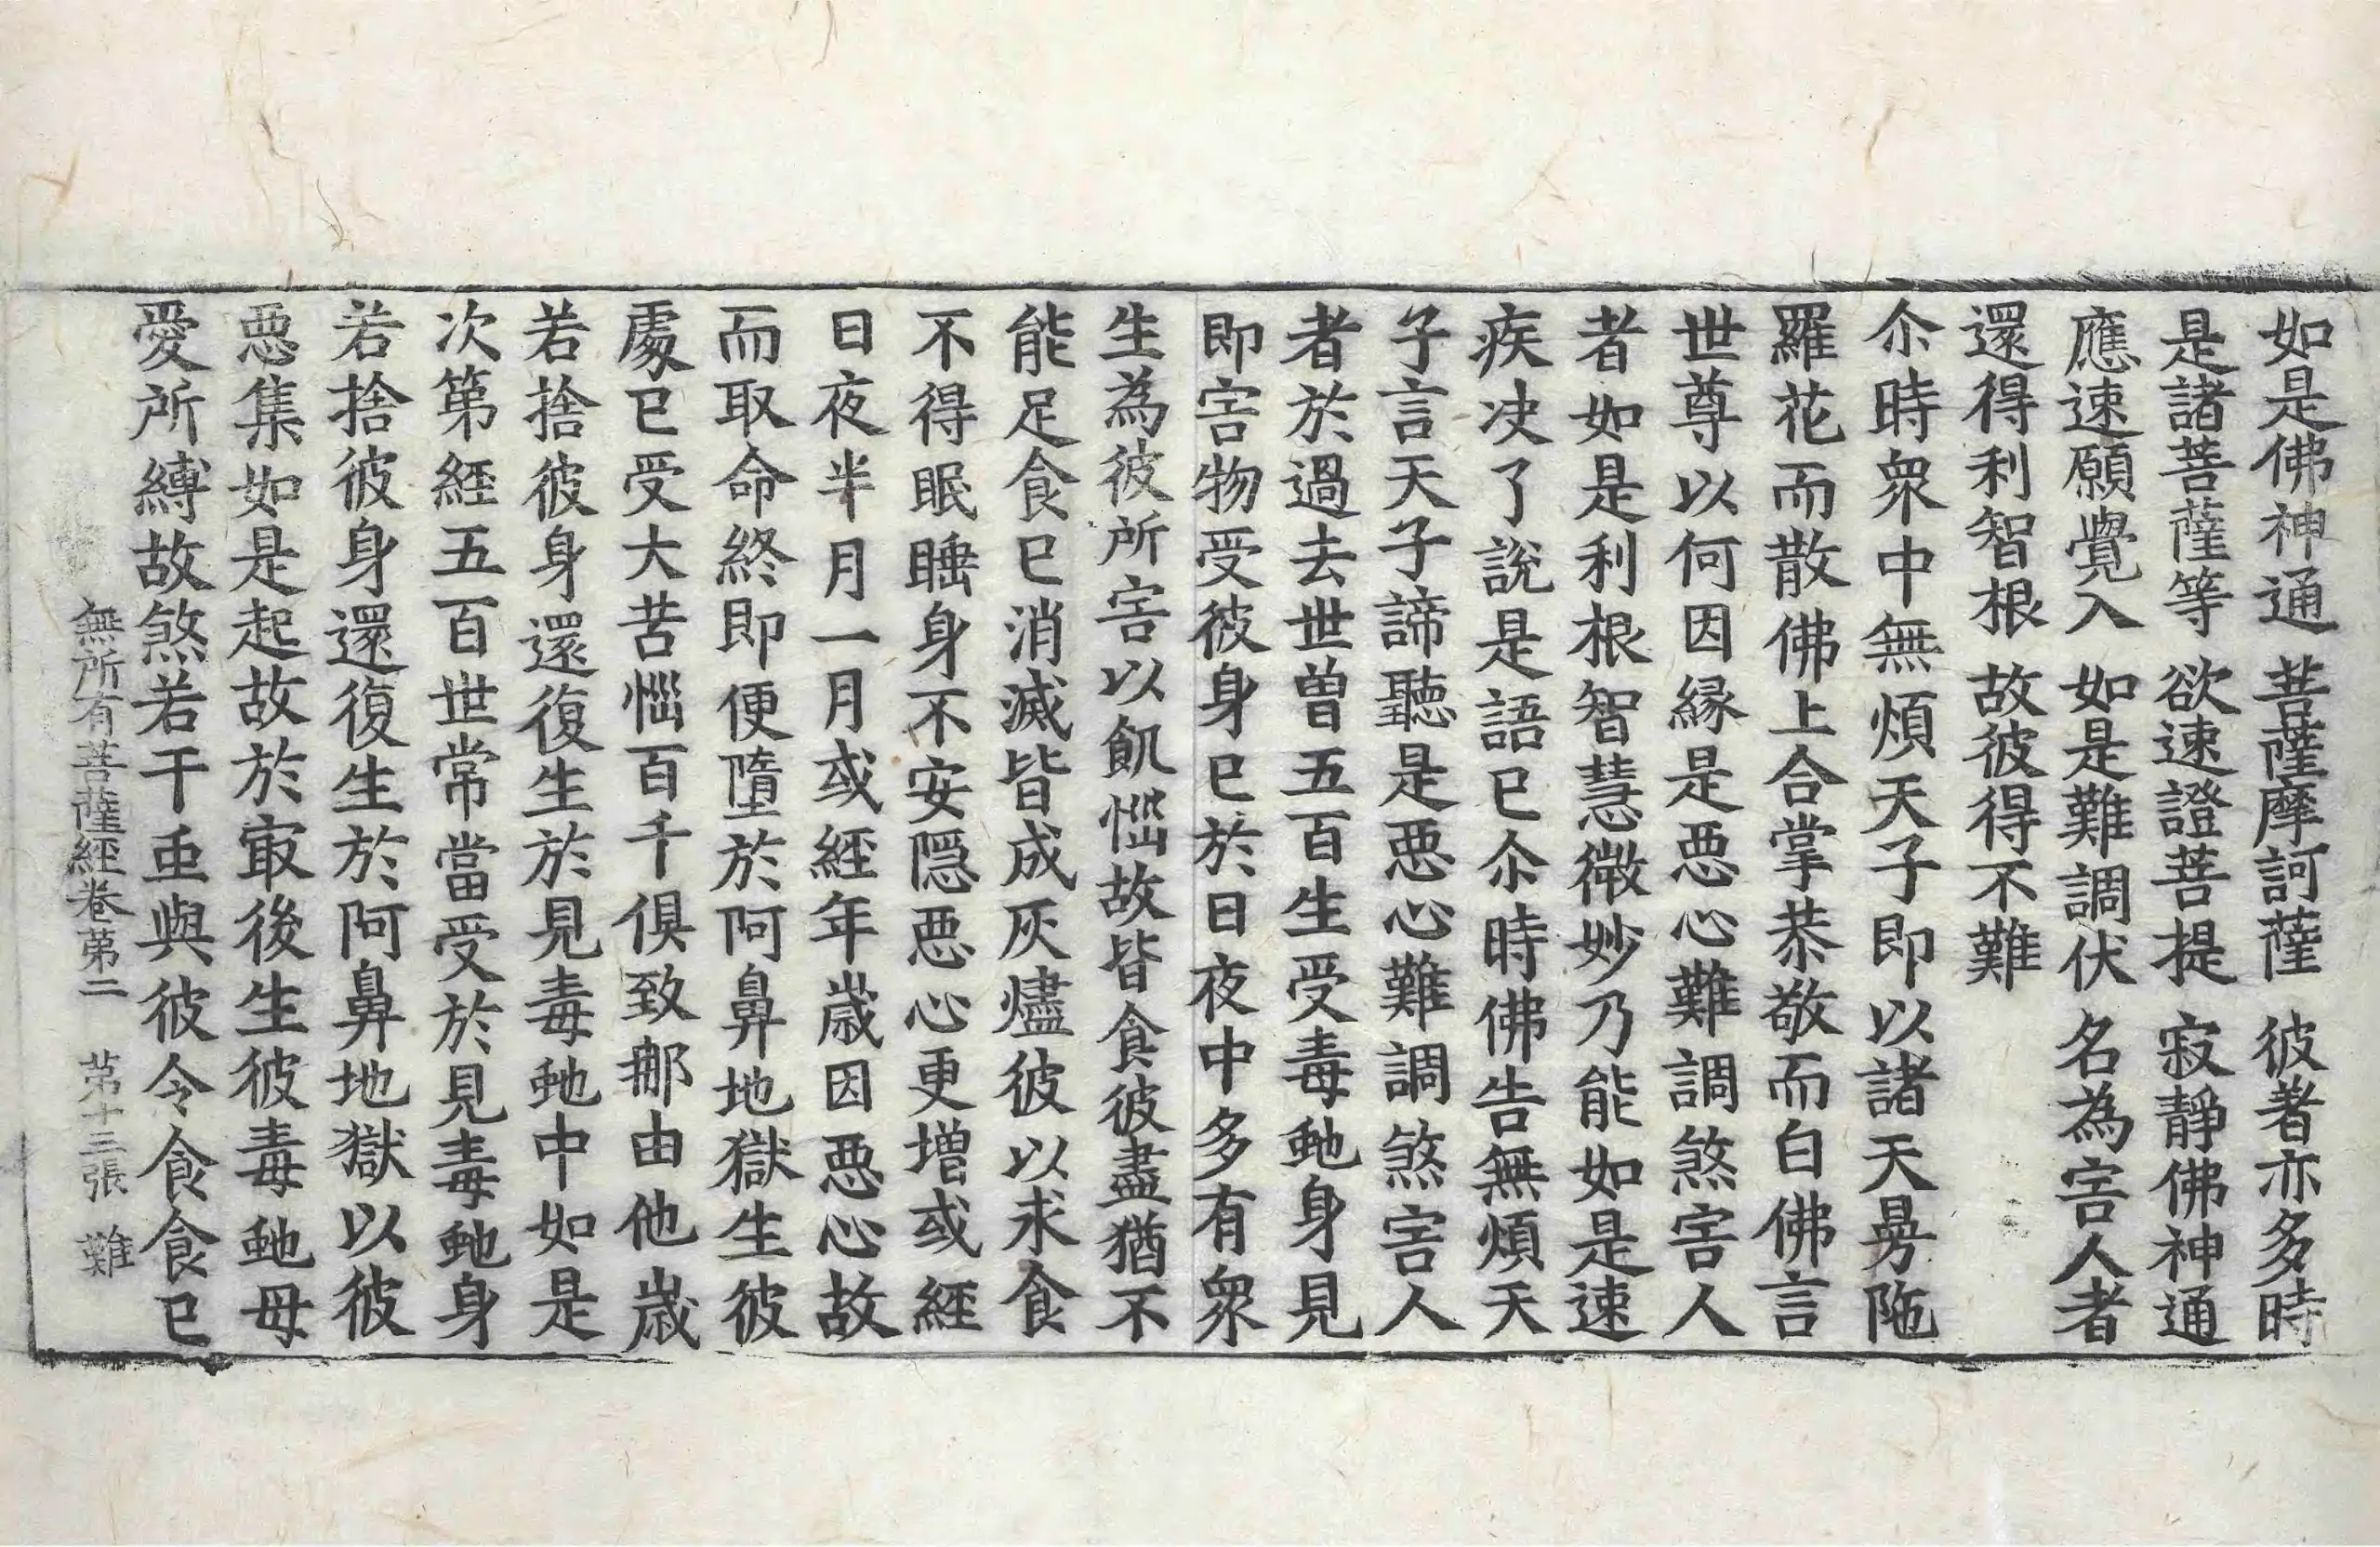 如是佛神通 菩薩摩訶薩 彼著亦多時
是諸菩薩等 欲速證菩提 寂靜佛神通
應速願覺入 如是難調伏 名為害人者
還得利智根 故彼得不難
尒時衆中無煩天子即以諸天曼陁
羅花而散佛上合掌恭敬而白佛言
世尊以何因緣是惡心難調煞害人
者如是利根智慧微妙乃能如是速
疾決了說是語已尒時佛告無煩天
子言天子諦聽是惡心難調煞害人
者於過去世曾五百生受毒虵身見
即害物受彼身已於日夜中多有衆
生為彼所害以飢惱故皆食彼盡猶不
能足食已消滅皆成灰燼彼以求食
不得眠睡身不安隱惡心更增或經
日夜半月一月或經年歲因惡心故
而取命終即便墮於阿鼻地獄生彼
處已受大苦惱百千俱致那由他歲
若捨彼身還復生於見毒虵中如是
次第經五百世常當受於見毒虵身
若捨彼身還復生於阿鼻地獄以彼
惡集如是起故於冣後生彼毒虵母
愛所縛故煞若干䖝與彼令食食已
無所有菩薩經卷第二 第十三張 難